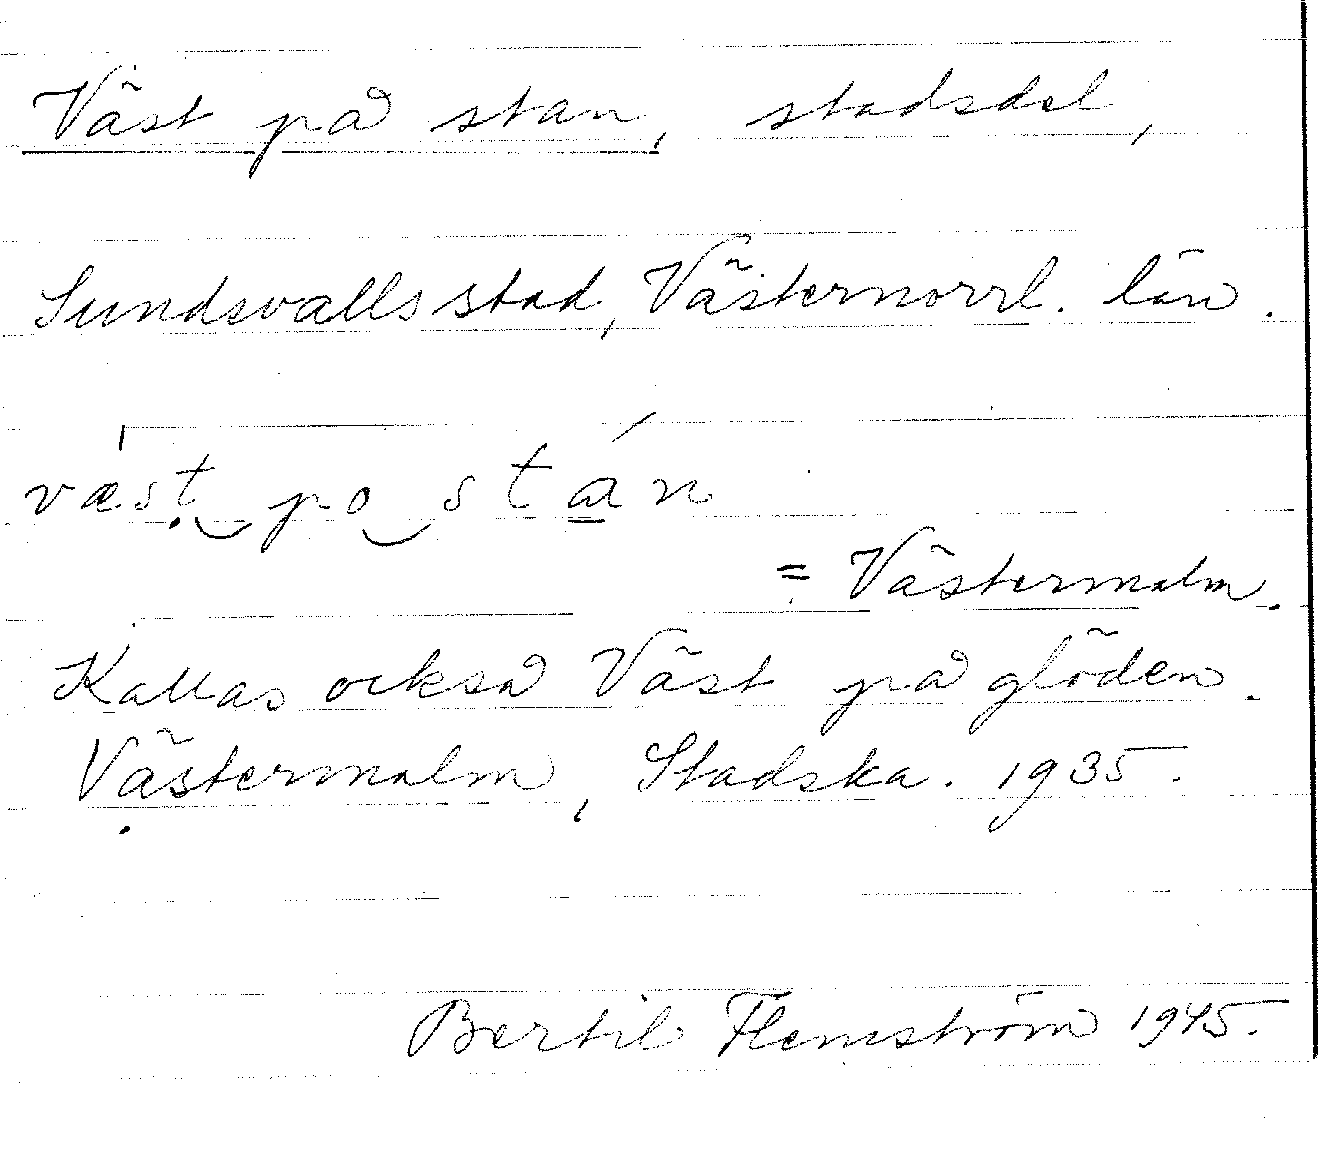 Väst på stan, stadsdel,
Sundsvalls stad, Västernorrl. län.
væst po stán
= Västermalm.
Kallas också Väst på glöden.
Västermalm, Stadska. 1935.
Bertil Flemström 1945.